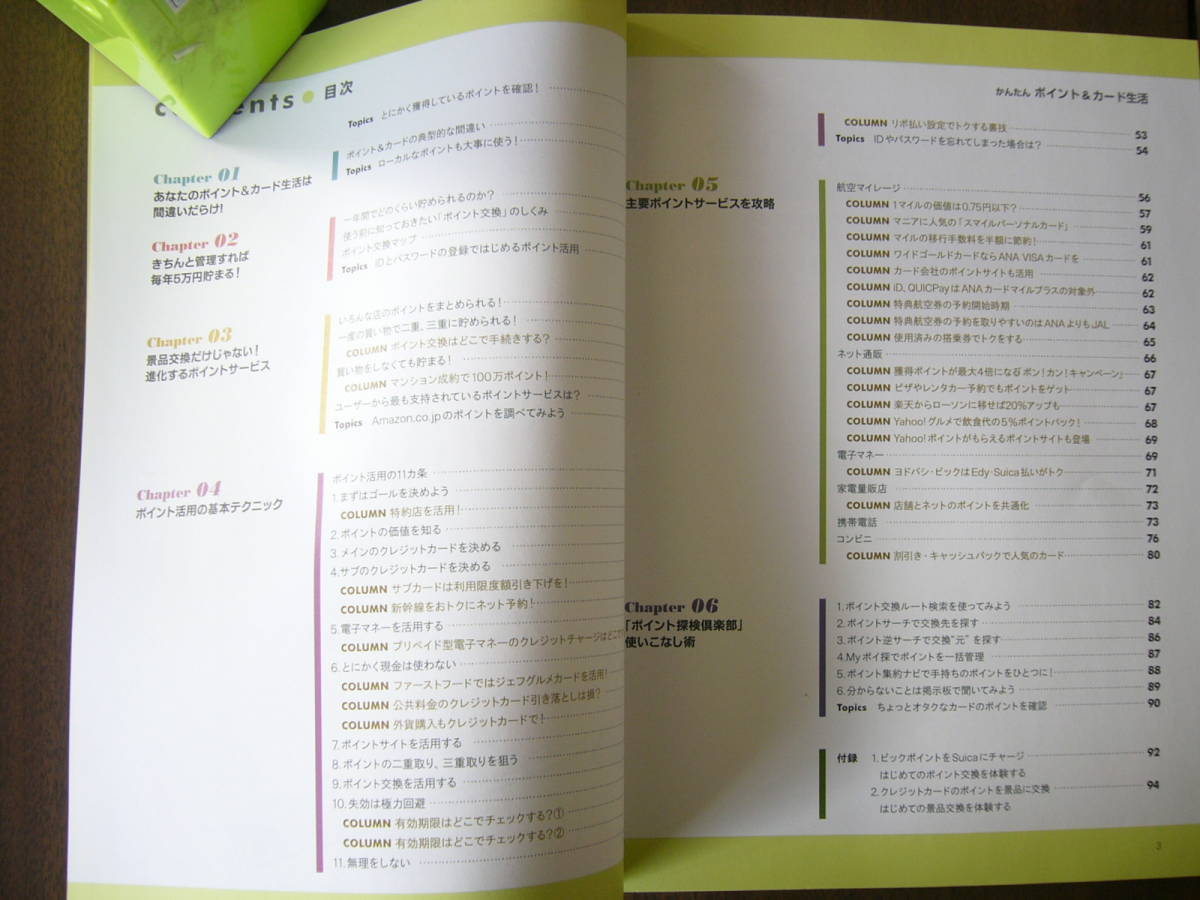 目次
Topics とにかく獲得しているポイントを確認!
Chapter 01
あなたのポイント&カード生活は
間違いだらけ!
ポイント&カードの典型的な間違い
Topics ローカルなポイントも大事に使う!
Chapter 02
きちんと管理すれば
毎年5万円貯まる!
一年間でどのくらい貯められるのか?
使う前に知っておきたい「ポイント交換」のしくみ
ポイント交換マップ
Topics IDとパスワードの登録ではじめるポイント活用
Chapter 03
景品交換だけじゃない!
進化するポイントサービス
いろんな店のポイントをまとめられる!
一度の買い物で二重、三重に貯められる!
COLUMN ポイント交換はどこで手続きする?
買い物をしなくても貯まる!
COLUMN マンション成約で100万ポイント!
ユーザーから最も支持されているポイントサービスは?
Topics Amazon.co.jpのポイントを調べてみよう
Chapter 04
ポイント活用の基本テクニック
ポイント活用の11カ条
1.まずはゴールを決めよう
COLUMN 特約店を活用!
2.ポイントの価値を知る
3.メインのクレジットカードを決める
4.サブのクレジットカードを決める
COLUMN サブカードは利用限度額引き下げを!
COLUMN 新幹線をおトクにネット予約!
5.電子マネーを活用する
COLUMN プリペイド型電子マネーのクレジットチャージは
6.とにかく現金は使わない
COLUMN ファーストフードではジェフグルメカードを活用!
COLUMN 公共料金のクレジットカード引き落としは損?
COLUMN 外貨購入もクレジットカードで!
7.ポイントサイトを活用する
8.ポイントの二重取り、三重取りを狙う
9.ポイント交換を活用する
10.失効は極力回避
COLUMN 有効期限はどこでチェックする?①
COLUMN 有効期限はどこでチェックする?②
11.無理をしない
かんたん ポイント&カード生活
COLUMN リボ払い設定でトクする裏技 53
Topics IDやパスワードを忘れてしまった場合は? 54
Chapter 05
主要ポイントサービスを攻略
航空マイレージ 56
COLUMN 1マイルの価値は0.75円以下? 57
COLUMN マニアに人気の「スマイルパーソナルカード」 59
COLUMN マイルの移行手数料を半額に節約! 61
COLUMN ワイドゴールドカードならANA VISAカードを 61
COLUMN カード会社のポイントサイトも活用 62
COLUMN iD、QUICPayはANAカードマイルプラスの対象外 62
COLUMN 特典航空券の予約開始時期 63
COLUMN 特典航空券の予約を取りやすいのはANAよりもJAL 64
COLUMN 使用済みの搭乗券でトクをする 65
ネット通販 66
COLUMN 獲得ポイントが最大4倍になる「ポン!カン!キャンペーン」 67
COLUMN ピザやレンタカー予約でもポイントをゲット 67
COLUMN 楽天からローソンに移せば20%アップも 67
COLUMN Yahoo!グルメで飲食代の5%ポイントバック! 68
COLUMN Yahoo!ポイントがもらえるポイントサイトも登場 69
電子マネー 69
COLUMN ヨドバシ・ビックはEdy・Suica払いがトク 71
家電量販店 72
COLUMN 店舗とネットのポイントを共通化 73
携帯電話 73
コンビニ 76
COLUMN 割引き・キャッシュバックで人気のカード 80
Chapter 06
「ポイント探検倶楽部」
使いこなし術
1.ポイント交換ルート検索を使ってみよう 82
2.ポイントサーチで交換先を探す 84
3.ポイント逆サーチで交換“元”を探す 86
4.Myポイ探でポイントを一括管理 87
5.ポイント集約ナビで手持ちのポイントをひとつに! 88
6.分からないことは掲示板で聞いてみよう 89
Topics ちょっとオタクなカードのポイントを確認 90
付録 1.ビックポイントをSuicaにチャージ 92
はじめてのポイント交換を体験する
2.クレジットカードのポイントを景品に交換 94
はじめての景品交換を体験する
3